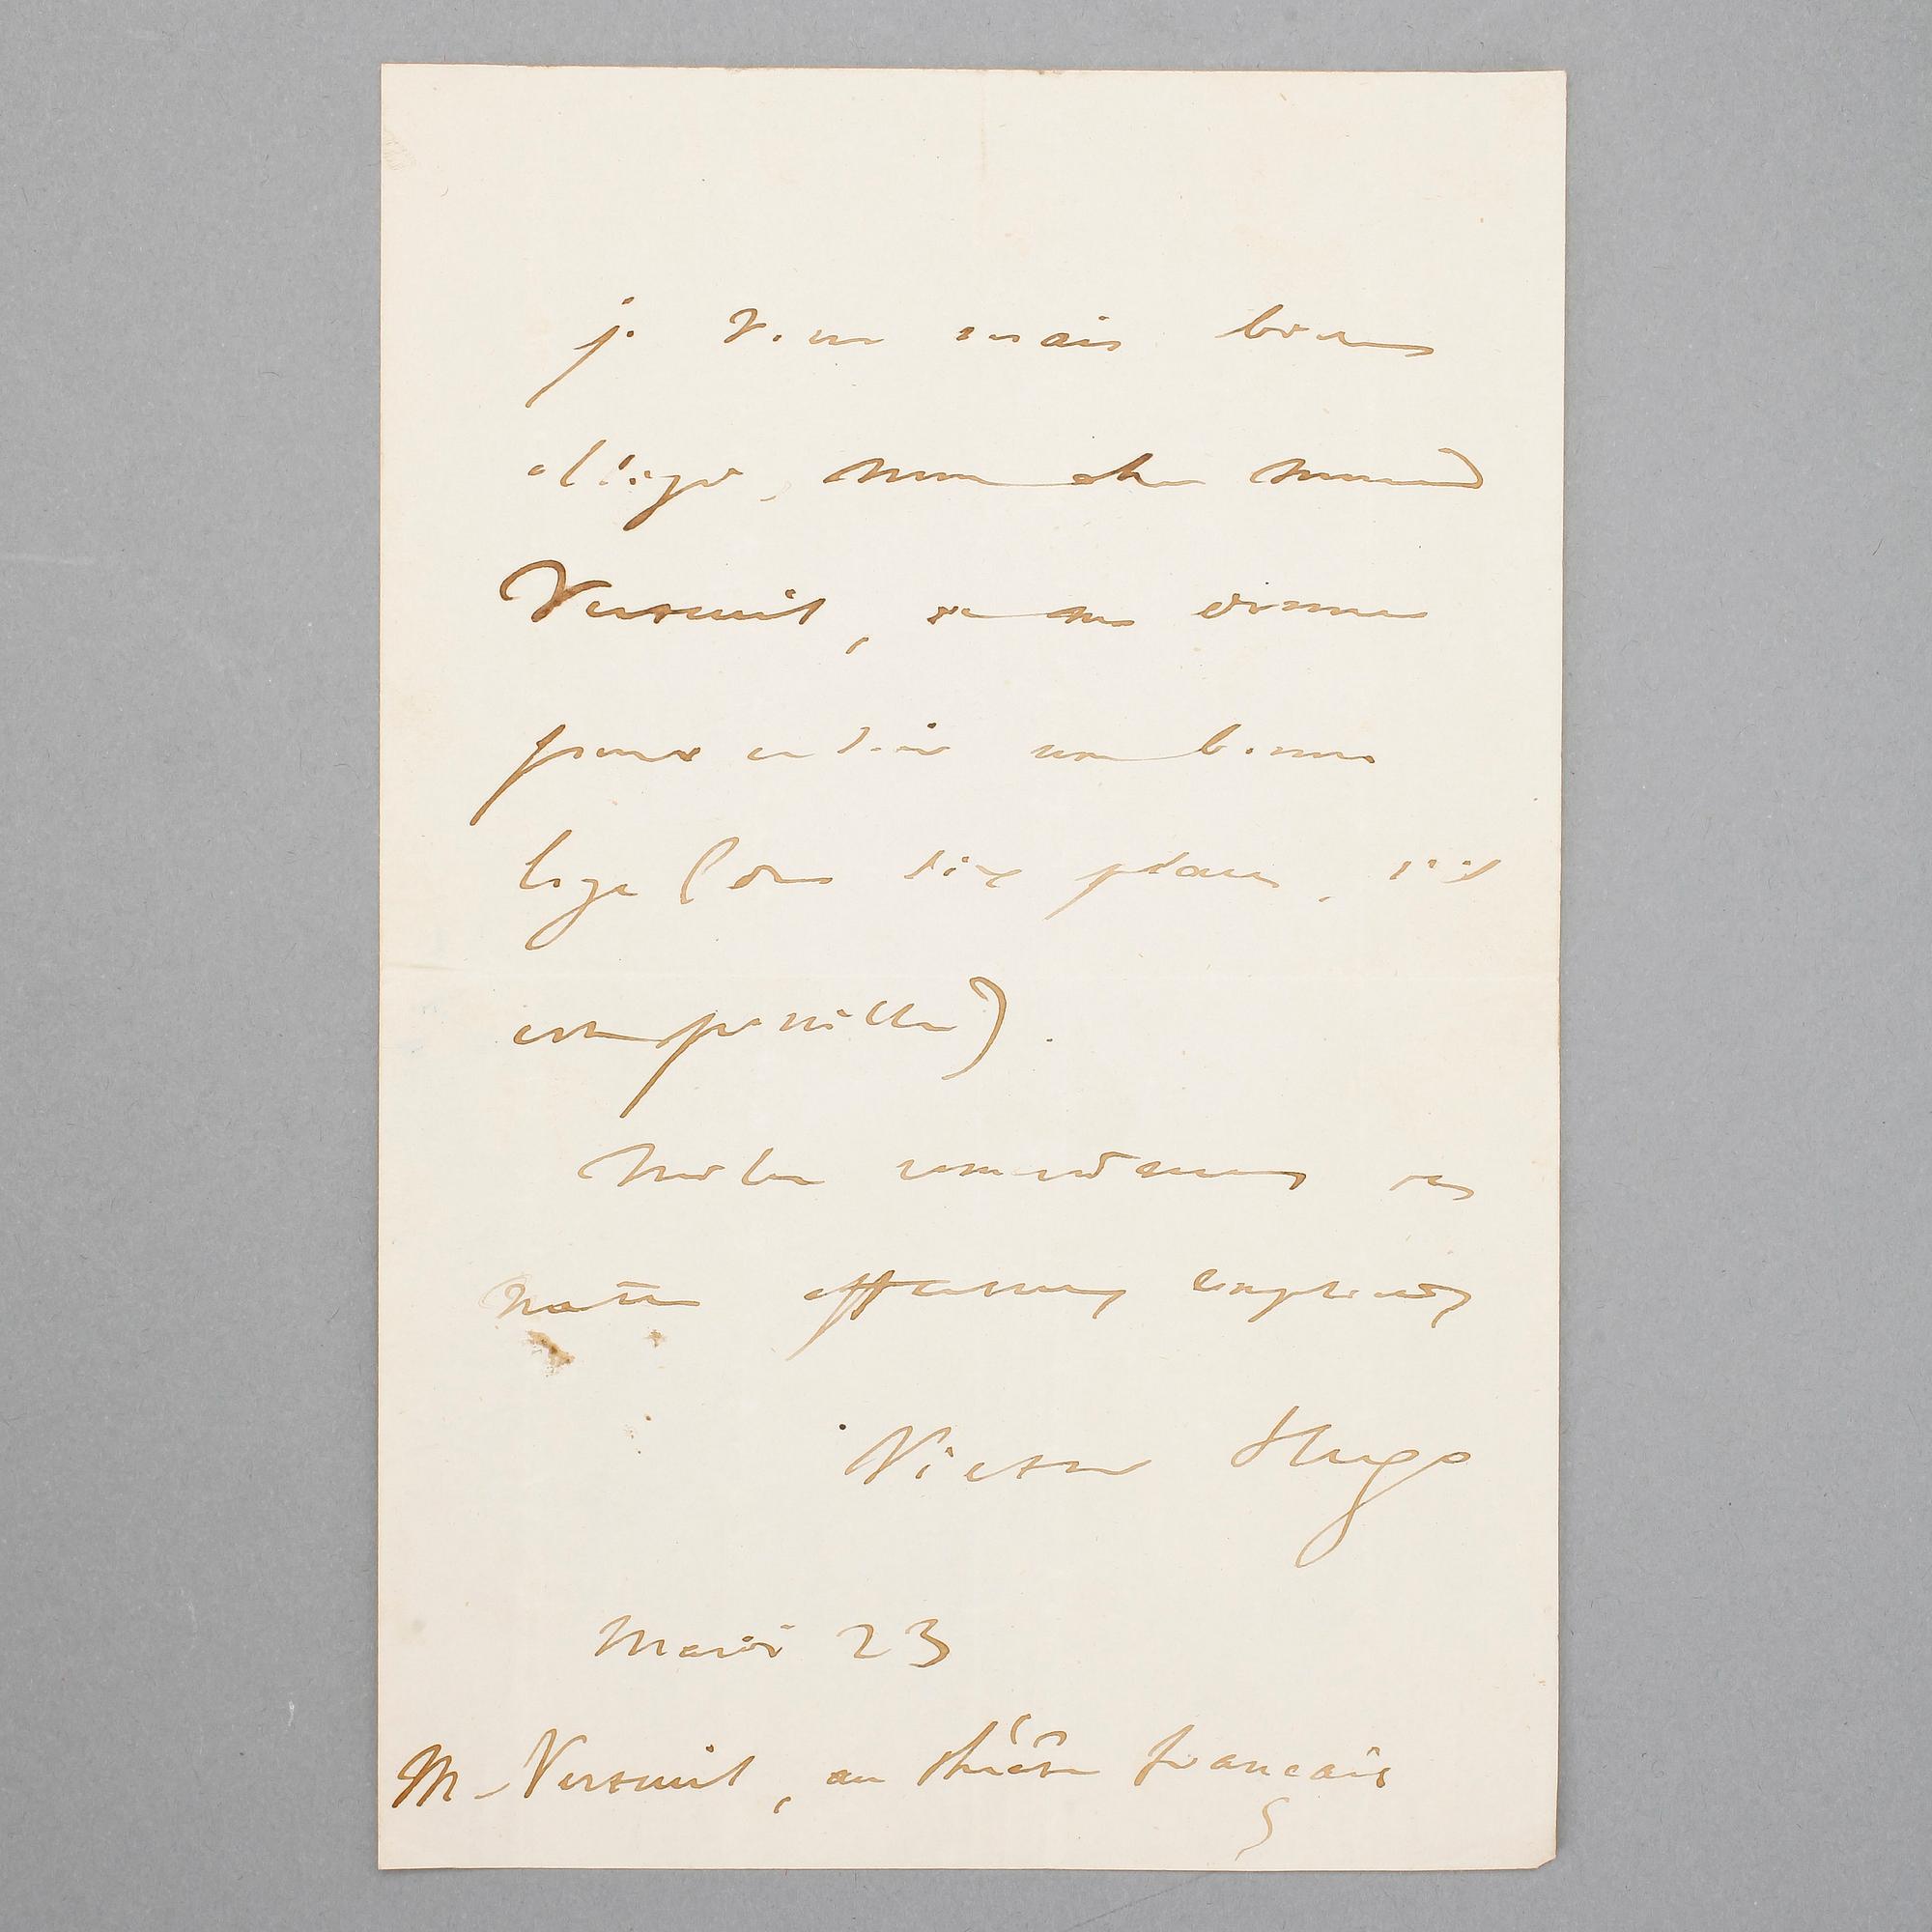 je vous serais bien
obligé, mon cher monsieur
Verteuil, de me donner
pour ce soir une bonne
loge (de six places, s'il
est possible)
Mille
affectueux
Victor Hugo
Mardi 23
M. Verteuil, au théâtre français